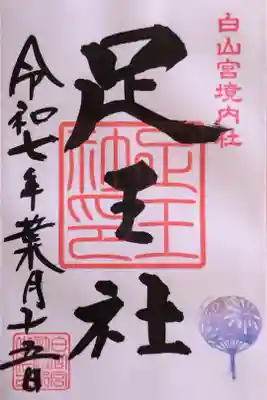 白山宮境内社
足王社
令和七年葉月十五日
足王
社印